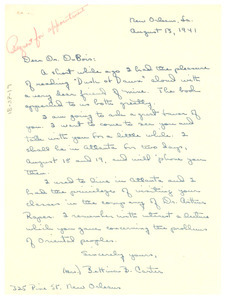 New Orleans, La.
August 13, 1941
Request for appointment
Dear Dr. DuBois:
A short while ago I had the pleasure
of reading "Dusk of Dawn" aloud with
a very dear friend of mine. The book
appeared to us both greatly.
I am going to ask a great favor of
you. I want to come to see you and
talk with you for a little while. I
shall be in Atlanta for two days,
August 18 and 19, and will 'phone you
then.
I used to live in Atlanta and I
had the privilege of visiting your
classes in the company of Dr. Arthur
Raper. I remember with interest a lecture
which you gave concerning the problems
of Oriental peoples.
Sincerely yours,
D. Carter
St. New Orleans